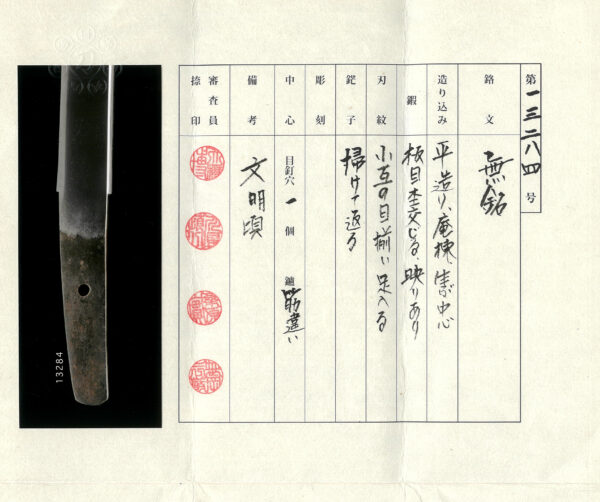 第一三二八四号
銘文 無銘
造り込み 平造り、庵棟、生ぶ中心
鍛 板目杢交じる、映りあり
刃紋 小互の目揃い足入る
鋩子 掃けて返る
彫刻
中心 目釘穴 一個 鑢 筋違い
備考 文明頃
審査員捺印
13284